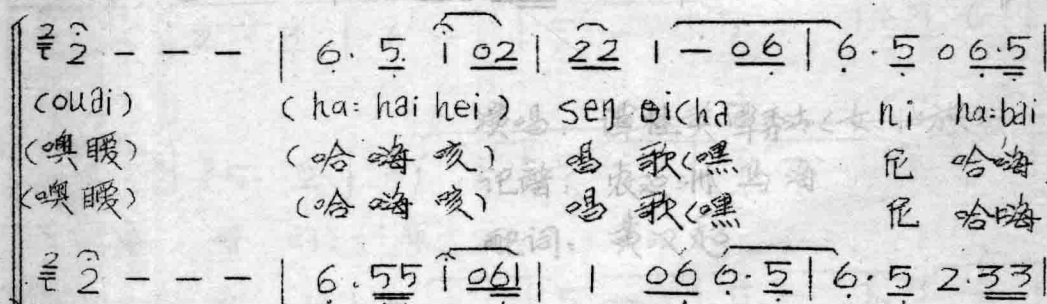 2 2 - - - | 6. 5 i 02 | 22 1 - 06 | 6. 5 0 6.5 |
(ouai) (ha: hai hei) seŋ ɵi(ha ni ha:hai
(噢暧) (哈嗨咳) 唱歌(嘿 伲 哈嗨
(噢暧) (哈嗨咳) 唱歌(嘿 伲 哈嗨
2 2 - - - | 6. 55 i 061 | 1 06 6. 5 | 6. 5 2.33 |